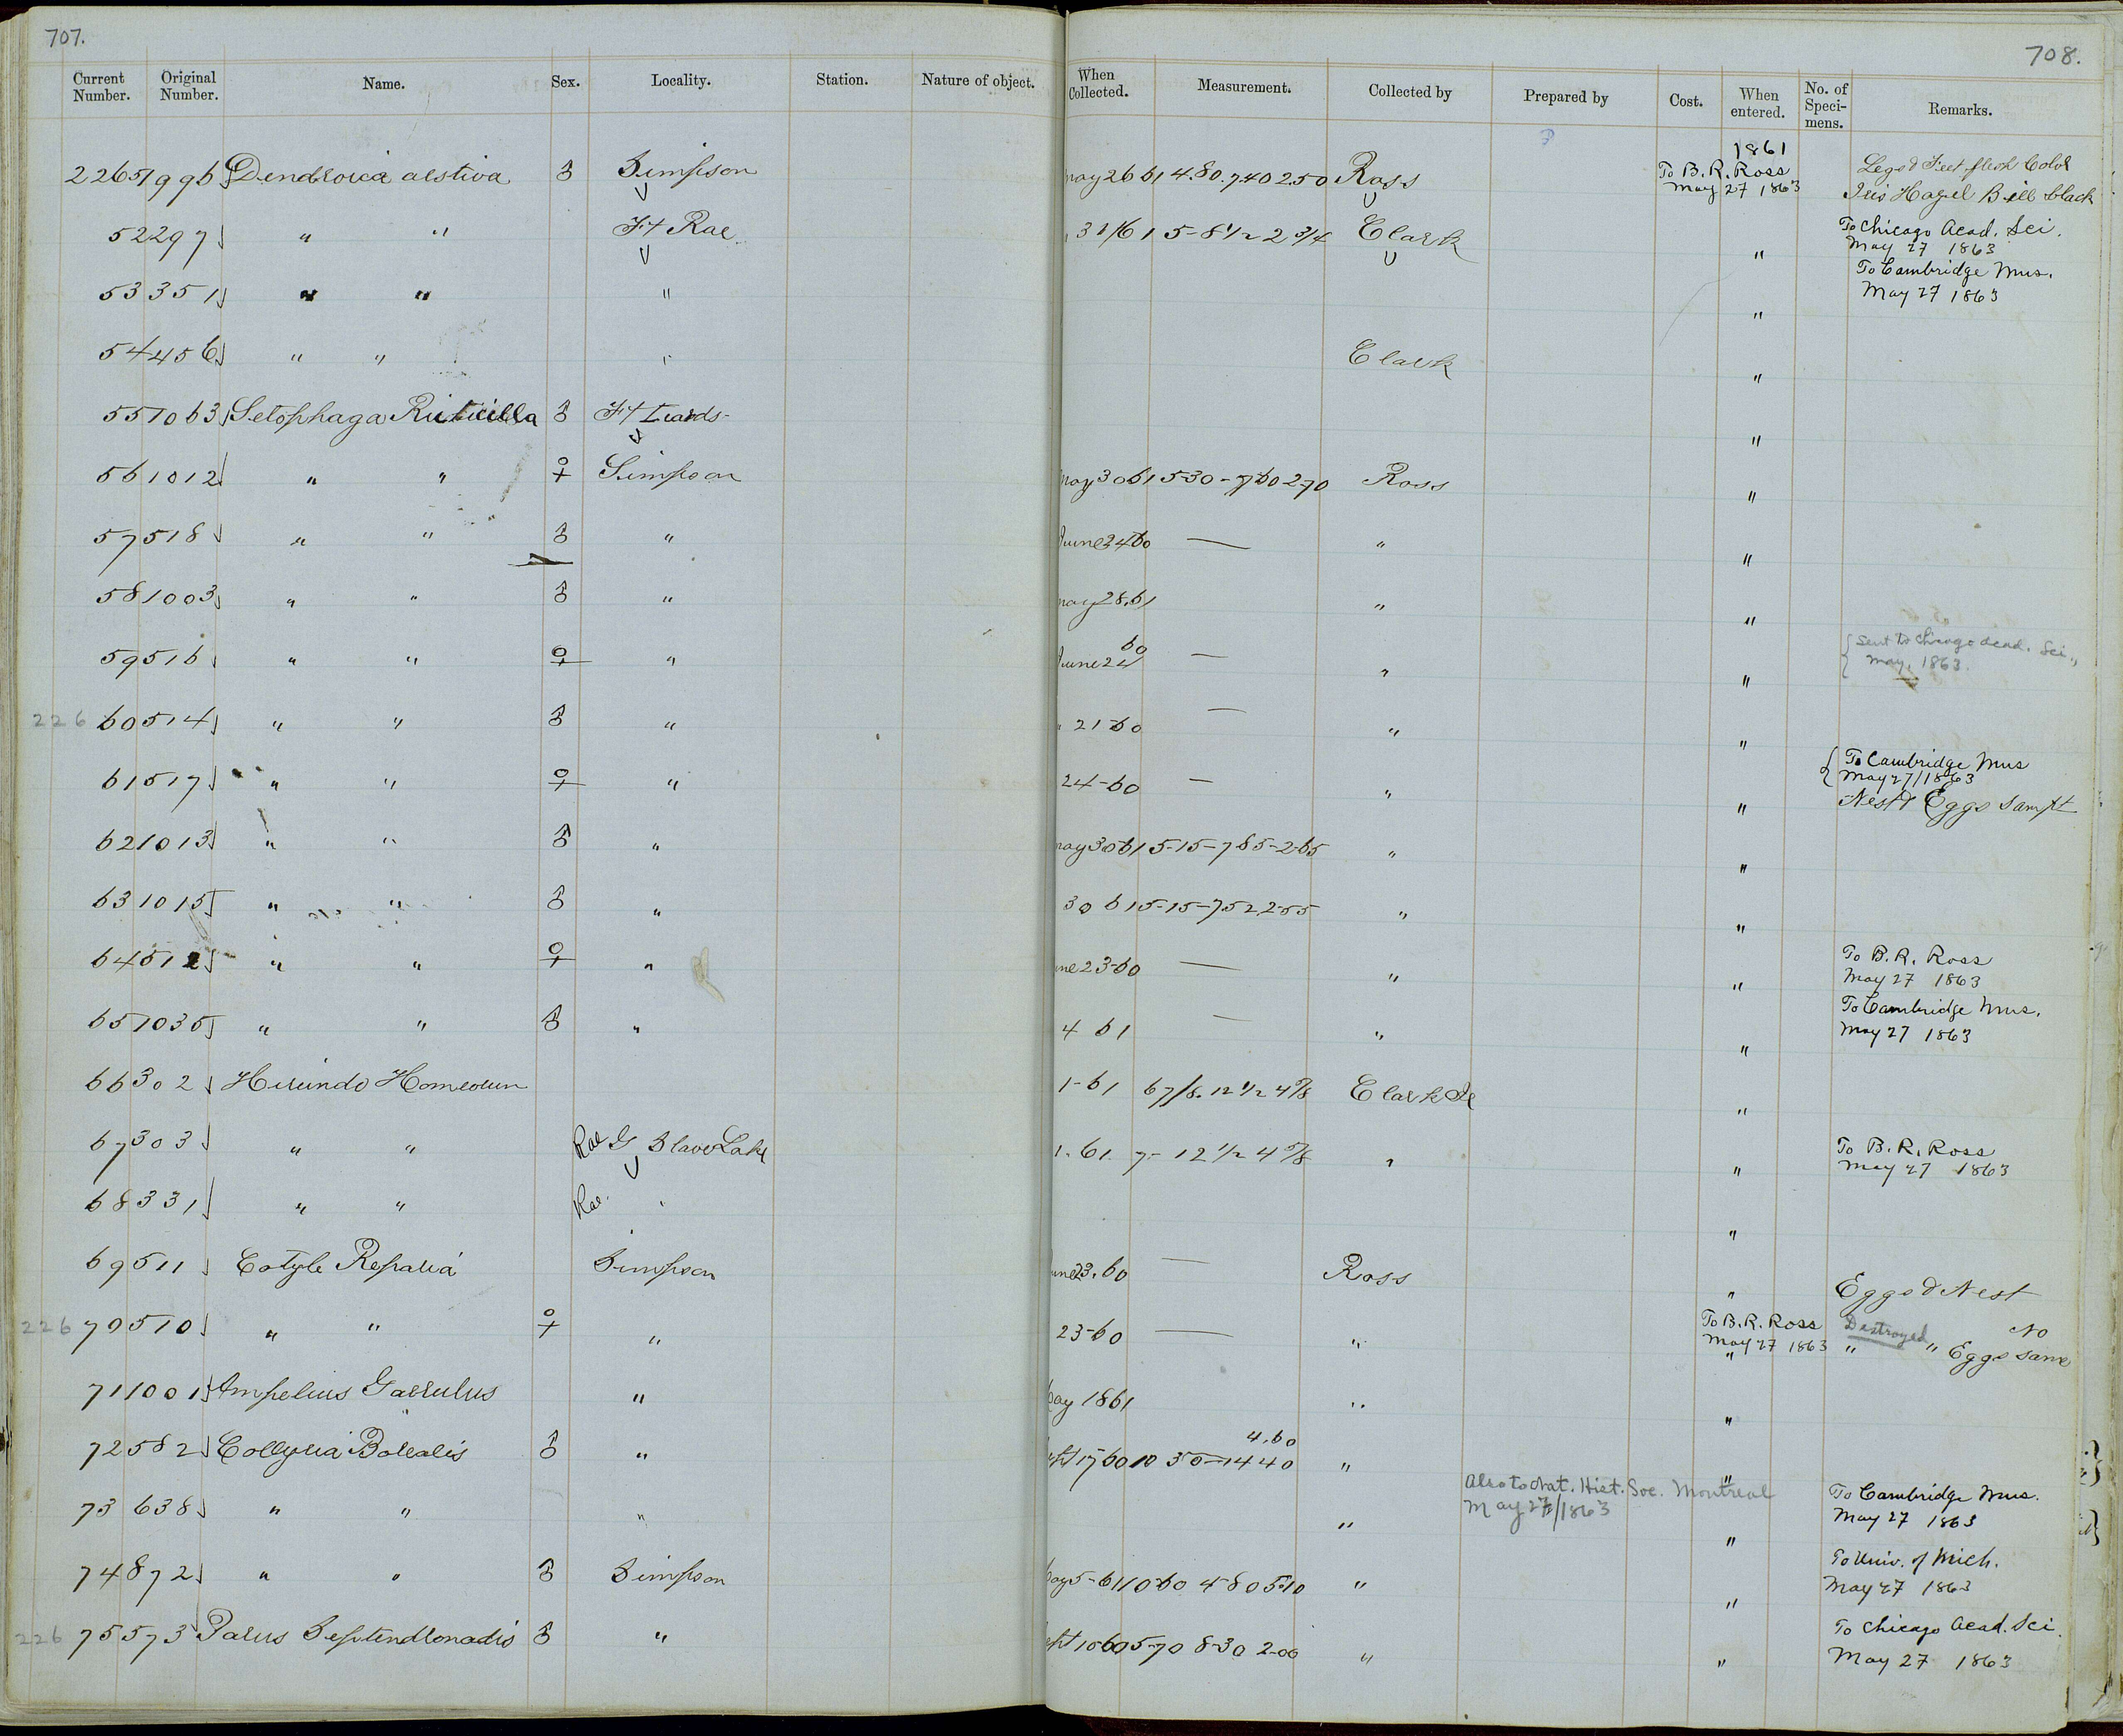 707.
708.
Current Number. Original Number. Name. Sex. Locality. Station. Nature of object. When Collected. Measurement. Collected by Prepared by Cost. When entered. No. of Specimens. Remarks.
1861
22651 996 Dendroica aestiva ♂ Simpson May 26 61 4.80. 7.40 2.50 Ross To B. R. Ross May 27 1863 Legs & Feet flesh Color Iris Hazel Bill black
52 297 " " Ft Rae " 31/61 5-8 1/2 2 3/4 Clark " To Chicago Acad. Sci. May 27 1863
53 351 " " " " To Cambridge Mus. May 27 1863
54 456 " " " Clark "
55 1063 Setophaga Ruticilla ♂ Ft Liards "
56 1012 " " ♀ Simpson May 30 61 5-30-7 60 2-70 Ross "
57 518 " " ♂ " June 24 60 — " "
58 1003 " " ♂ " May 28. 61 " "
59 516 " " ♀ " June 24 60 — " " Sent to Chicago Acad. Sci., May, 1863.
226 60 514 " " ♂ " " 21-60 — " "
61 517 " " ♀ " 24-60 — " " To Cambridge Mus May 27/1863 Nest & Eggs
62 1013 " " ♂ " May 30 61 5-15-7 85-2-65 " "
63 1015 " " ♂ " 30 61 5-15-7 52 2-55 " "
64 512 " " ♀ " June 23-60 — " " To B. R. Ross May 27 1863
65 1035 " " ♂ " 4 61 — " " To Cambridge Mus. May 27 1863
66 302 Hirundo Horreorum 1-61 6 7/8. 12 1/2 4 5/8 Clark "
67 303 " " Rae G Slave Lake 1. 61. 7- 12 1/2 4 5/8 " " To B. R. Ross May 27 1863
68 331 " " Rae. " "
69 511 Cotyle Reparia Simpson June 23. 60 — Ross " Eggs & Nest
226 70 510 " " ♀ " 23-60 — " To B. R. Ross May 27 1863 " Destroyed " " No Eggs same
71 1001 Ampelius Garrulus " May 1861 " "
72 582 Collyria Borealis ♂ " Sept 17 60 10 50-14 40 4.60 " "
Also to Nat. Hist. Soc. Montreal May 27/1863
73 638 " " " " " To Cambridge Mus. May 27 1863
74 872 " " ♂ Simpson May 5-61 10-60 4-80 5-10 " " To Univ. of Mich. May 27 1863
226 75 573 Parus Septendronadis ♂ " Sept 10-60 5-70 8-30 2-00 " " To Chicago Acad. Sci. May 27 1863